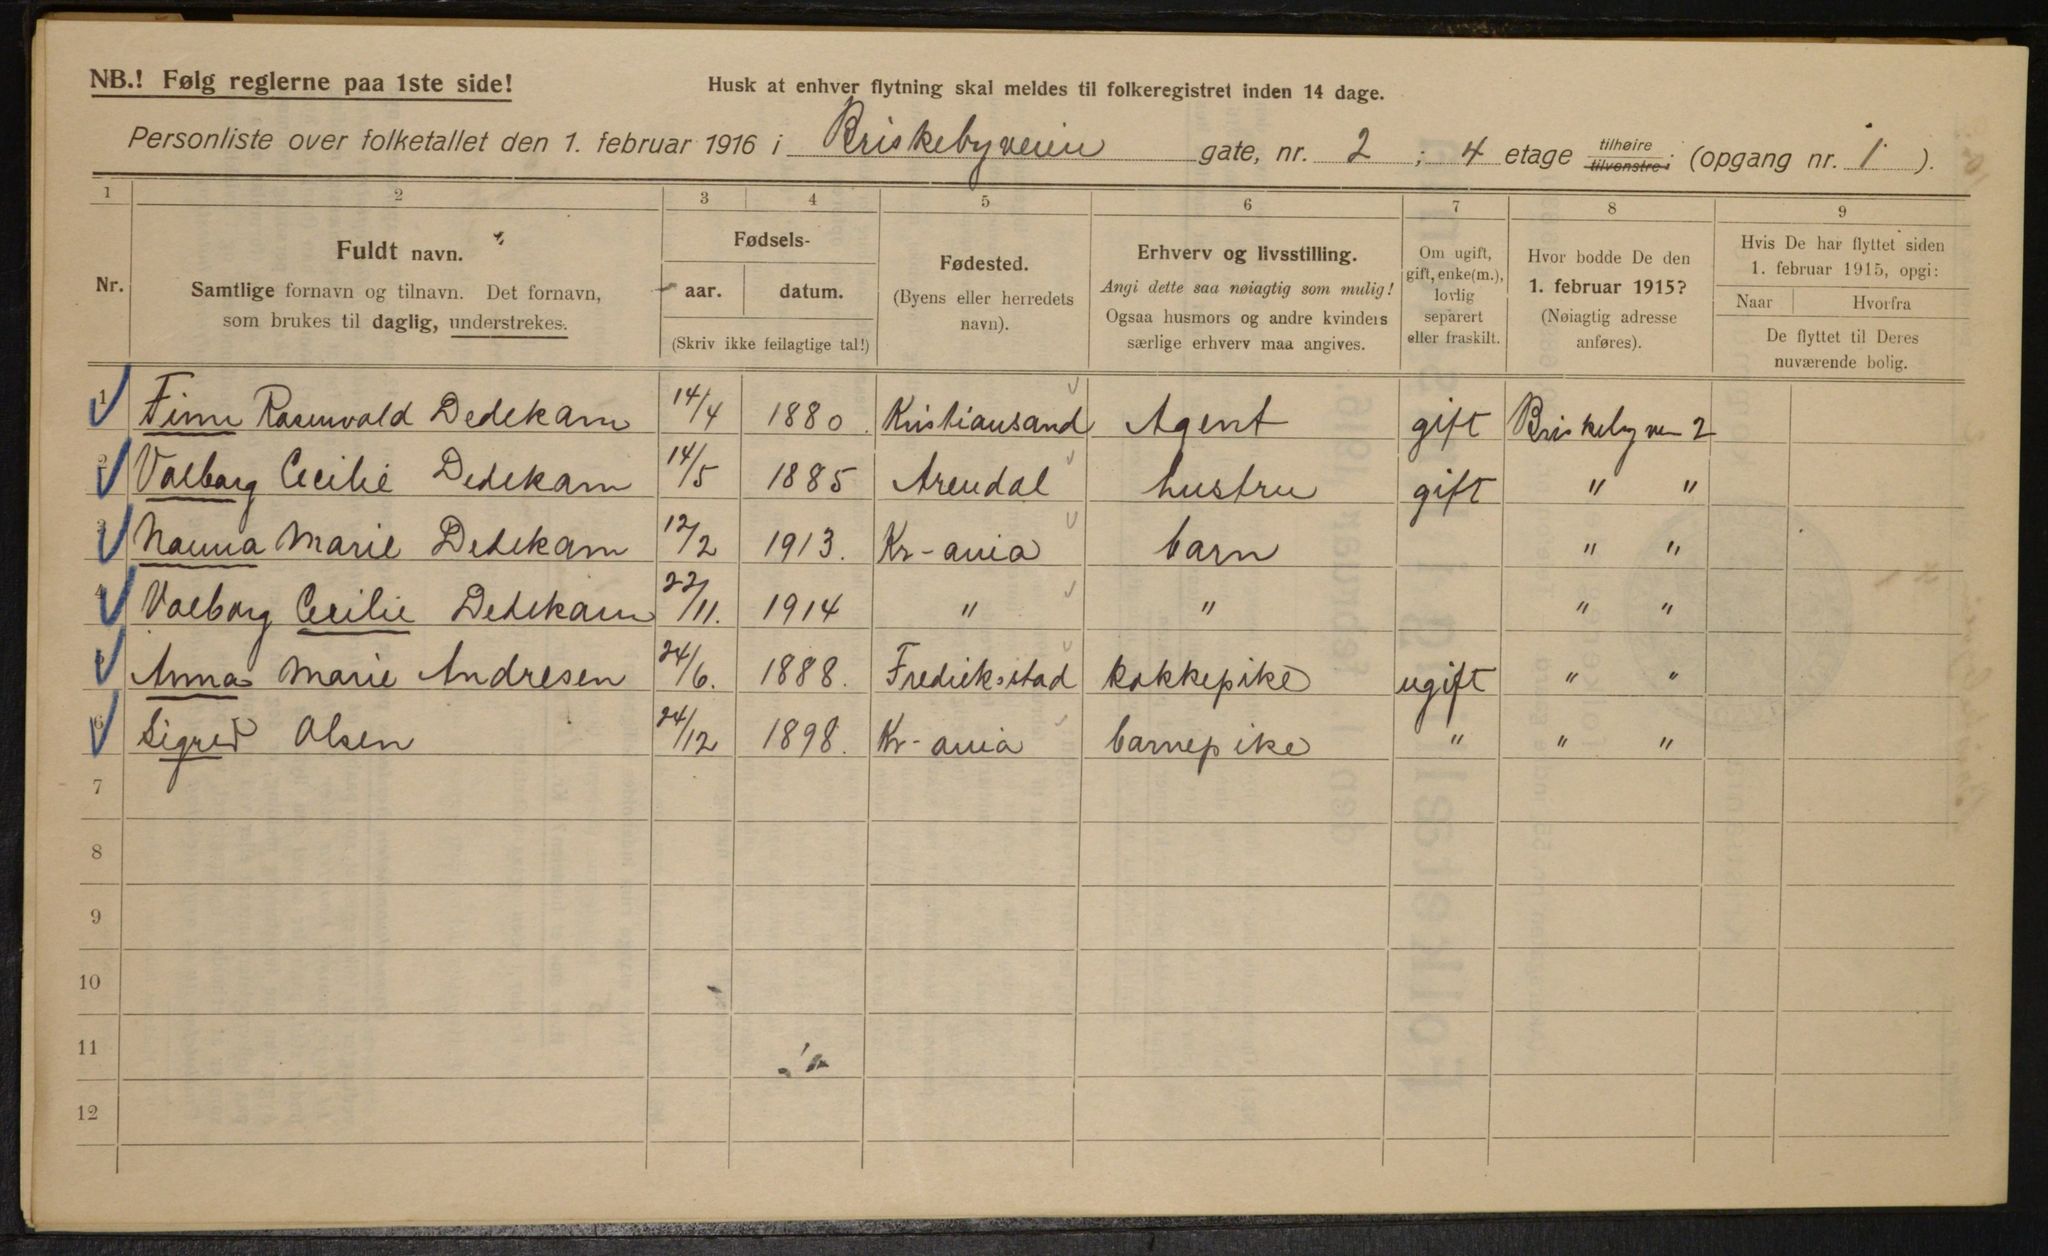 NB.! Følg reglerne paa 1ste side!
Husk at enhver flytning skal meldes til folkeregistret inden 14 dage.
Personliste over folketallet den 1. februar 1916 i Briskebyveien gate, nr. 2 ; 4 etage tilhøire tilvenstre (opgang nr. 1 ).
1 2 3 4 5 6 7 8 9
Nr.
Fuldt navn.
Samtlige fornavn og tilnavn. Det fornavn,
som brukes til daglig, understrekes.
Fødsels-
aar. datum.
(Skriv ikke feilagtige tal!)
Fødested.
(Byens eller herredets
navn).
Erhverv og livsstilling.
Angi dette saa nøiagtig som mulig!
Ogsaa husmors og andre kvinders
særlige erhverv maa angives.
Om ugift,
gift, enke(m.),
lovlig
separert
eller fraskilt.
Hvor bodde De den
1. februar 1915?
(Nøiagtig adresse
anføres).
Hvis De har flyttet siden
1. februar 1915, opgi:
Naar Hvorfra
De flyttet til Deres
nuværende bolig.
1 Finn Rosenvold Dedekam 14/4 1880. Kristiansand Agent gift Briskebyvei 2
2 Valborg Cecilie Dedekam 14/5 1885 Arendal hustru gift " "
3 Nanna Marie Dedekam 12/2 1913. Kr-ania barn " "
4 Valborg Cecilie Dedekam 22/11. 1914 " " " "
5 Anna Marie Andresen 24/6. 1888. Fredriksstad kokkepike ugift " "
6 Sigrid Olsen 24/12 1898. Kr-ania barnepike " " "
7
8
9
10
11
12